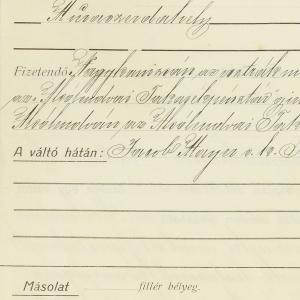 Muraszerdahely
Fizetendő Nagykanizsán, az osztrák m
az „Alsólendvai Takarékpénztár”
Alsólendván az Alsólendvai Tak
A váltó hátán: Jacob Mayer s. k.
Másolat fillér bélyeg.